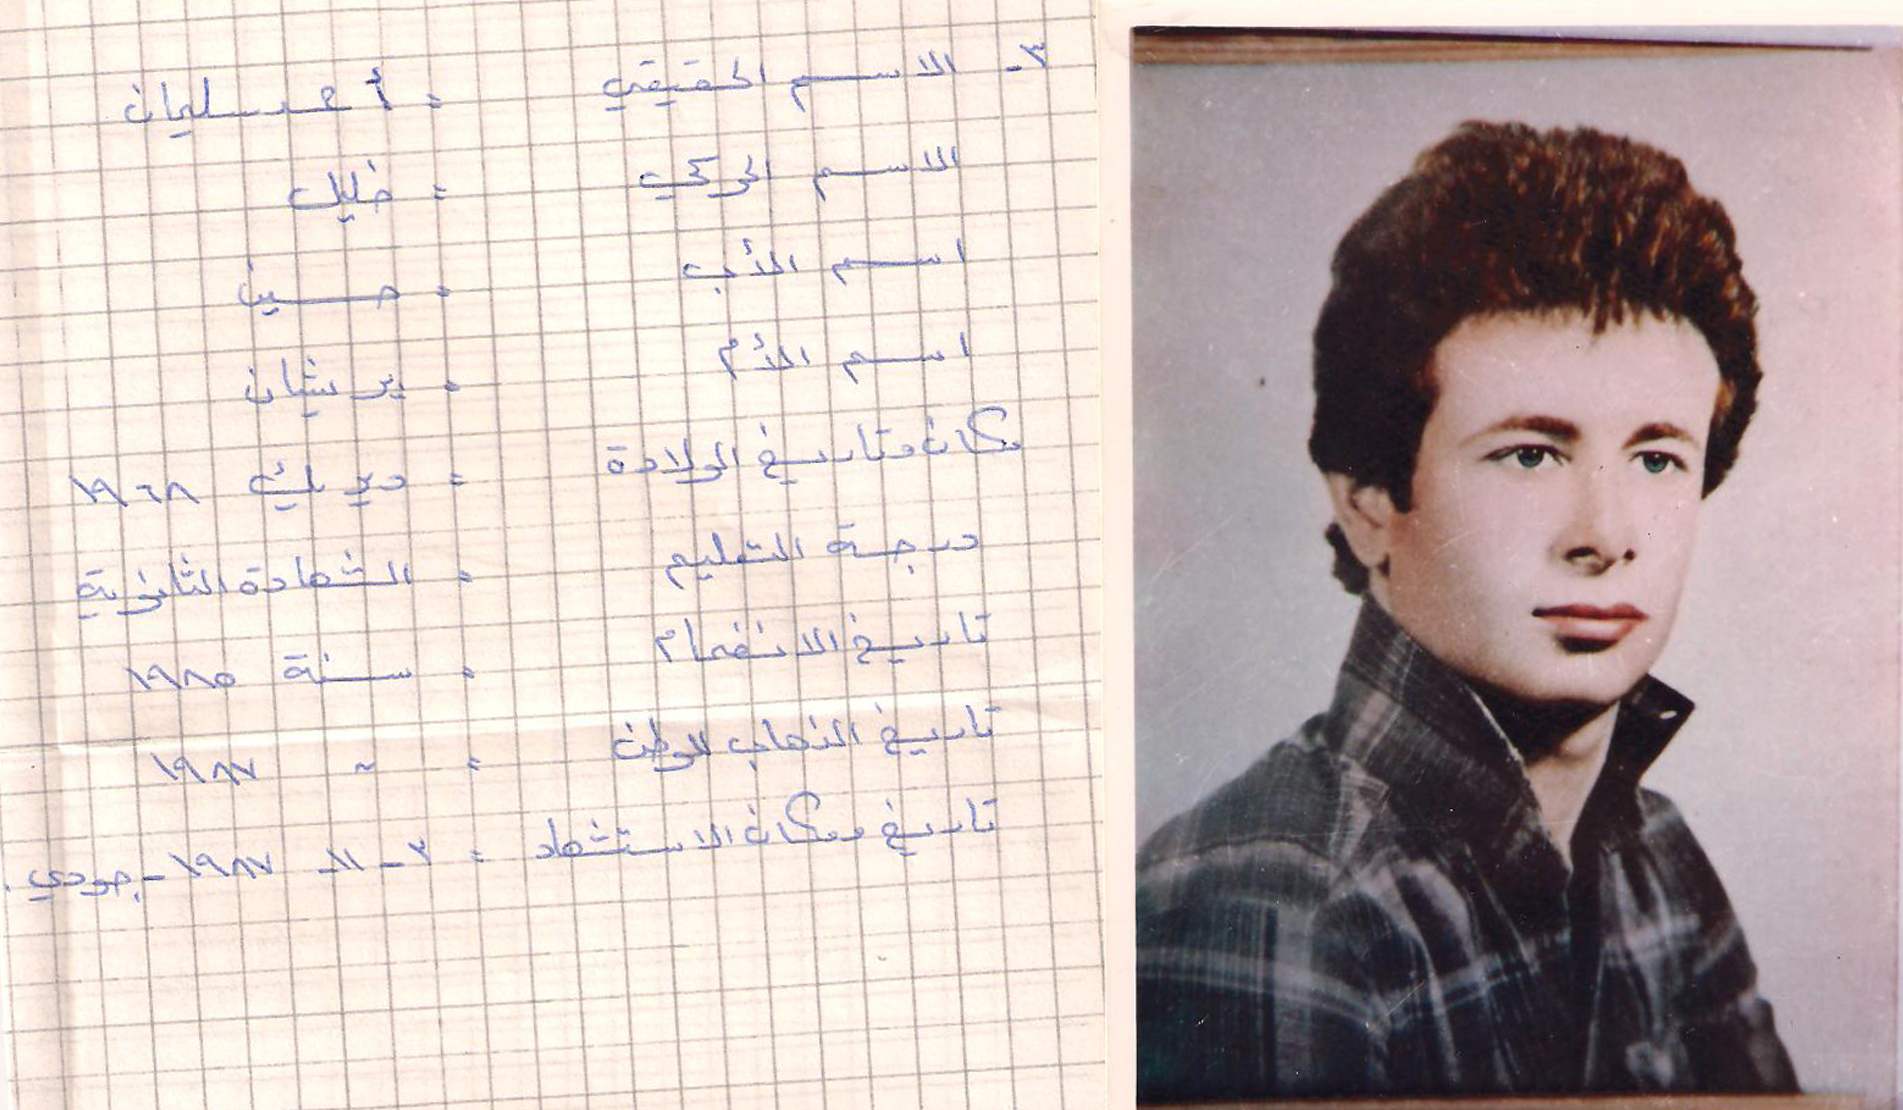 ٣- الاسم الحقيقي : أحمد سليمان
الاسم الحركي : خليل
اسم الأب : حسين
اسم الأم : بريشان
مكان وتاريخ الولادة : ١٩٦٨
درجة التعليم : الشهادة الثانوية
تاريخ الانضمام : سنة ١٩٨٥
تاريخ الذهاب للوطن : ~ ١٩٨٧
تاريخ ومكان الاستشهاد : ٢- ١١- ١٩٨٧ - جودي .